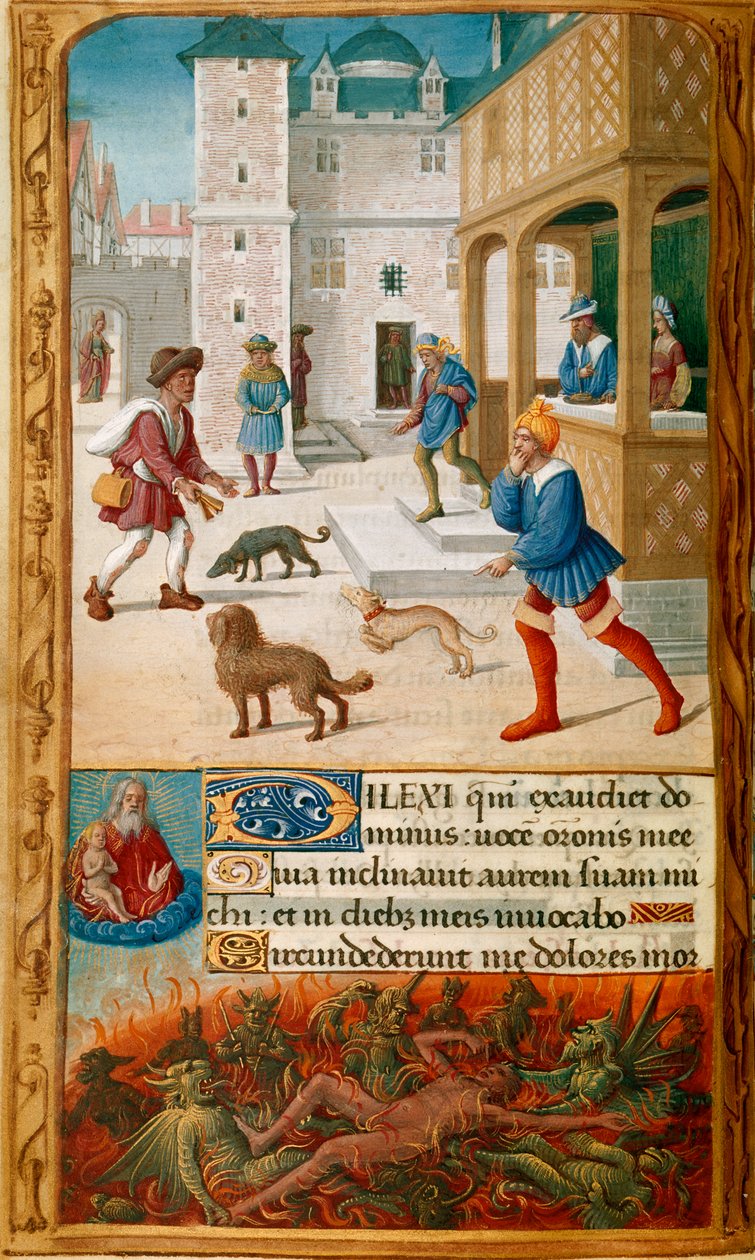 DILEXI qm̄ exaudiet do-
minus: uocē or̄onis mee
Quia inclinauit aurem suam mi
chi: et in diebꝫ meis inuocabo
Circundederunt me dolores mor